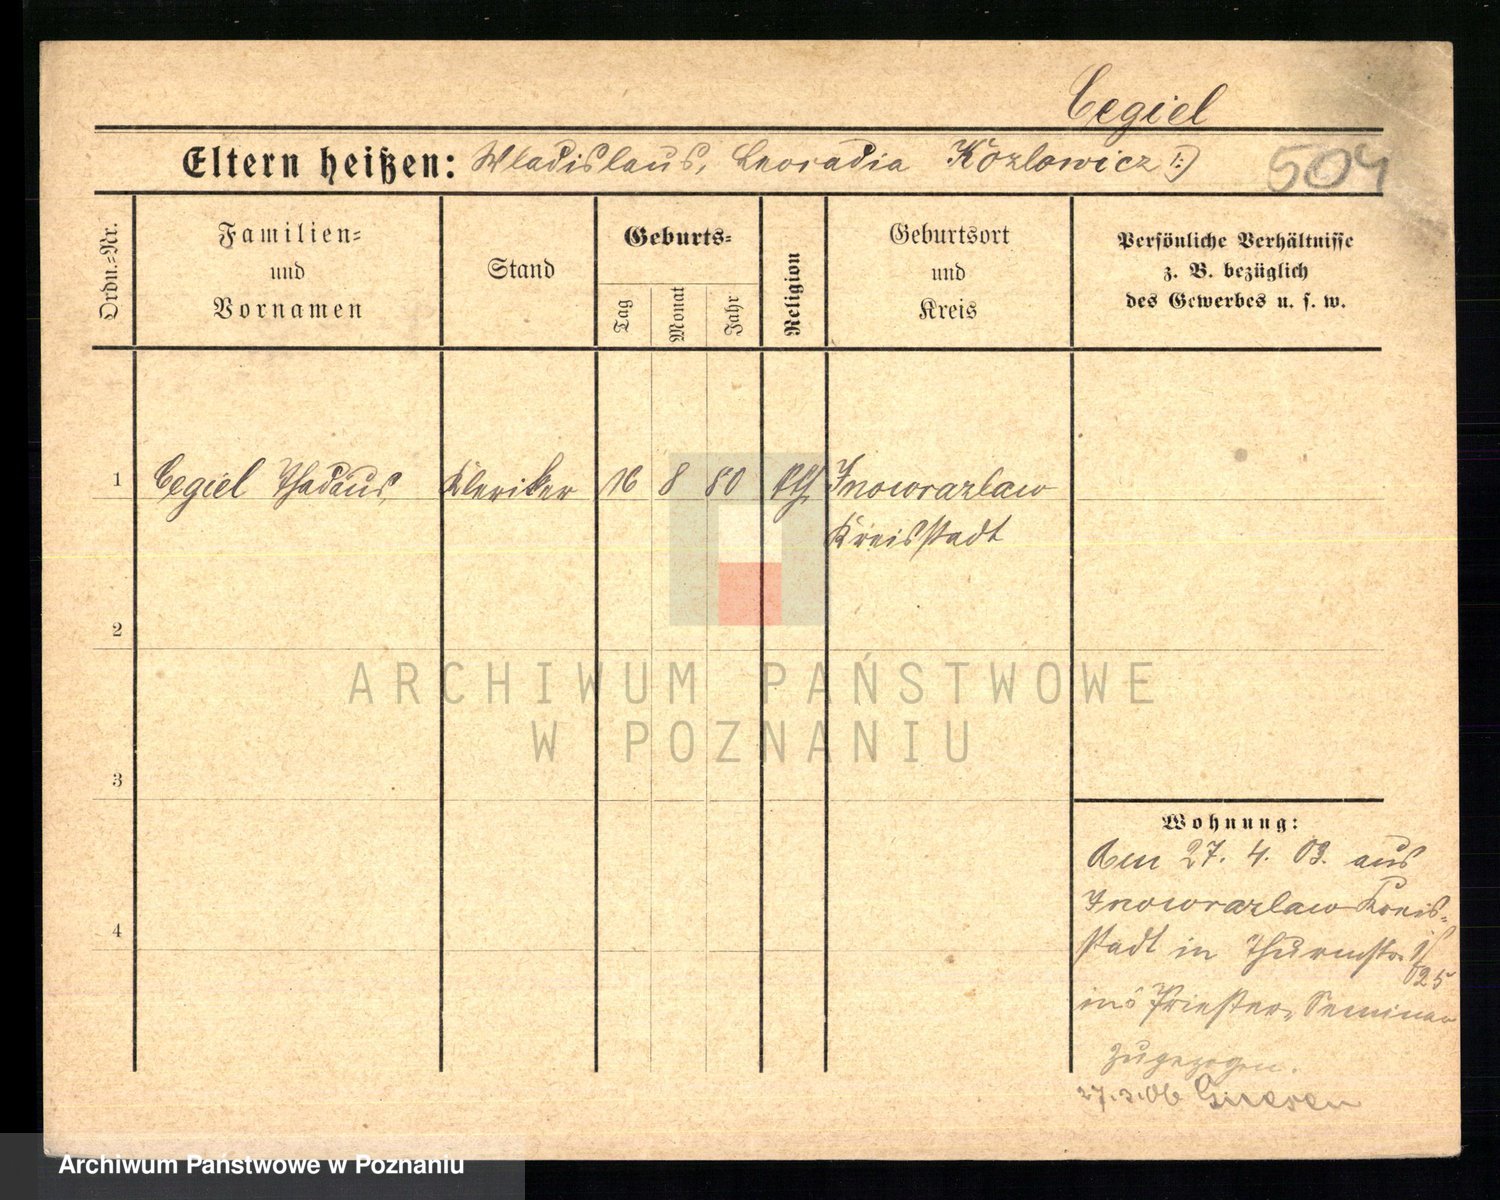 Cegiel
Eltern heißen: Wladislaus, Leoradia Kozlowicz
504
Ordn.=Nr.
Familien=
und
Vornamen
Stand
Geburts=
Tag
Monat
Jahr
Religion
Geburtsort
und
Kreis
Persönliche Verhältnisse
z. B. bezüglich
des Gewerbes u. s. w.
1 Cegiel Thadäus, Kleriker 16 8 80 kth. Inowrazlaw
Kreisstadt
2
ARCHIWUM PAŃSTWOWE
W POZNANIU
3
Wohnung:
Am 27. 4. 03. aus
Inowrazlaw Kreis=
4
stadt in Thurmstr.
25
ins Priester= Seminar
zugezogen.
27.3.06 Gnesen
Archiwum Państwowe w Poznaniu